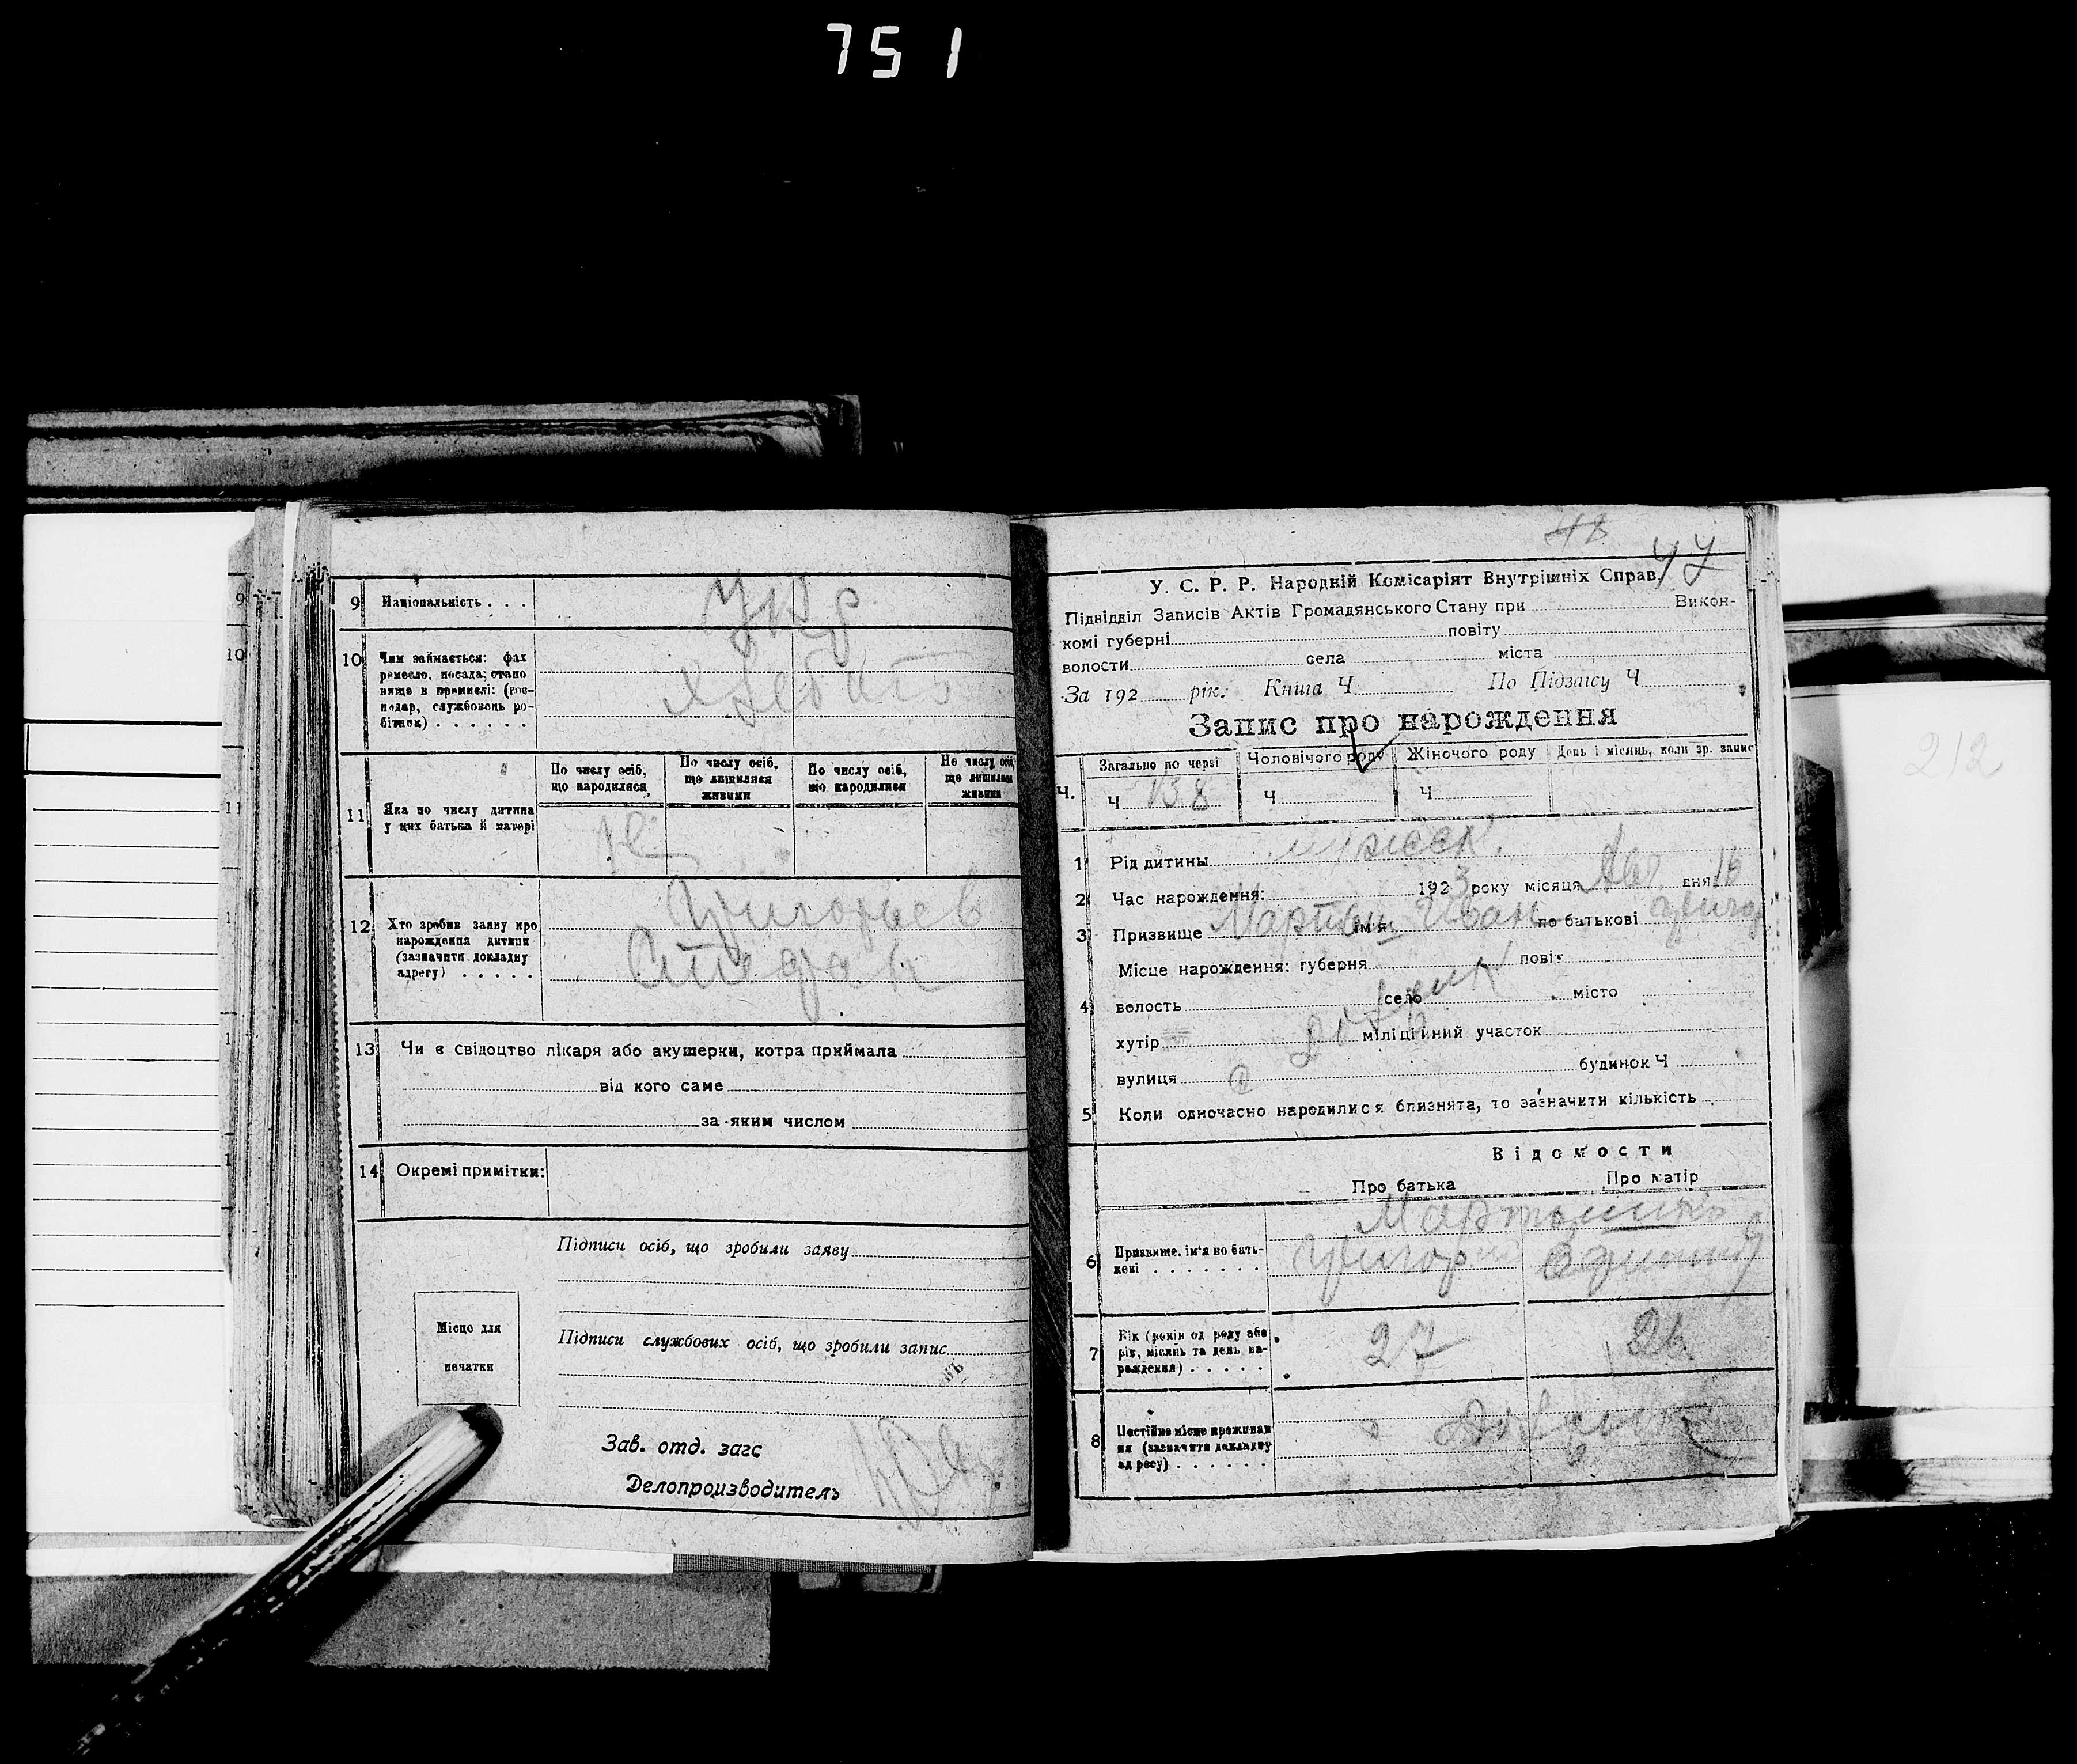 751
9 Національність . . .
Укр
10 Чим займається: фах
ремесло, посада; стано
вище в промислі: (гос-
подар, службовець ро-
бітник) . . . . . .
Хлебоп
11 Яка по числу дитина
у них батька й матері
По числу осіб, що народилися
По числу осіб, що лишилися живими
По числу осіб, що народилися
По числу осіб, що лишилися живими
12 Хто зробив заяву про
нарождення дитини
(зазначити докладну
адресу) . . . . .
13 Чи є свідоцтво лікаря або акушерки, котра приймала
від кого саме
за яким числом
14 Окремі примітки:
Підписи осіб, що зробили заяву
Місце для
печатки
Підписи службових осіб, що зробили запис
Зав. отд. загс
Делопроизводитель
9
10
11
48
47
У. С. Р. Р. Народній Комісаріят Внутрішніх Справ
Підвідділ Записів Актів Громадянського Стану при Викон-
комі губерні повіту
волости села міста
За 192 рік. Книга Ч. По Підзапису Ч.
Запис про нарождення
Загально по черзі Чоловічого роду Жіночого роду День і місяць, коли зр. запис
Ч. Ч 138 Ч Ч
1 Рід дитины мужеск.
2 Час нарождення: 1923 року місяця Авг. дня 16
3 Призвище ім'я Иван по батькові Григор
Місце нарождення: губерня повіт
4 волость село місто
хутір міліційний участок
вулиця будинок Ч
5 Коли одночасно народилися близнята, то зазначити кількість
Відомости
Про батька Про матір
6 Призвище, ім'я по бать-
кові . . . . . . .
Григор
7 Вік (років од роду або
рік, місяць та день на-
рождення) . . . . .
27 26
8 Постійне місце проживан
ня (зазначити докладну
адресу) . . . . . .
212